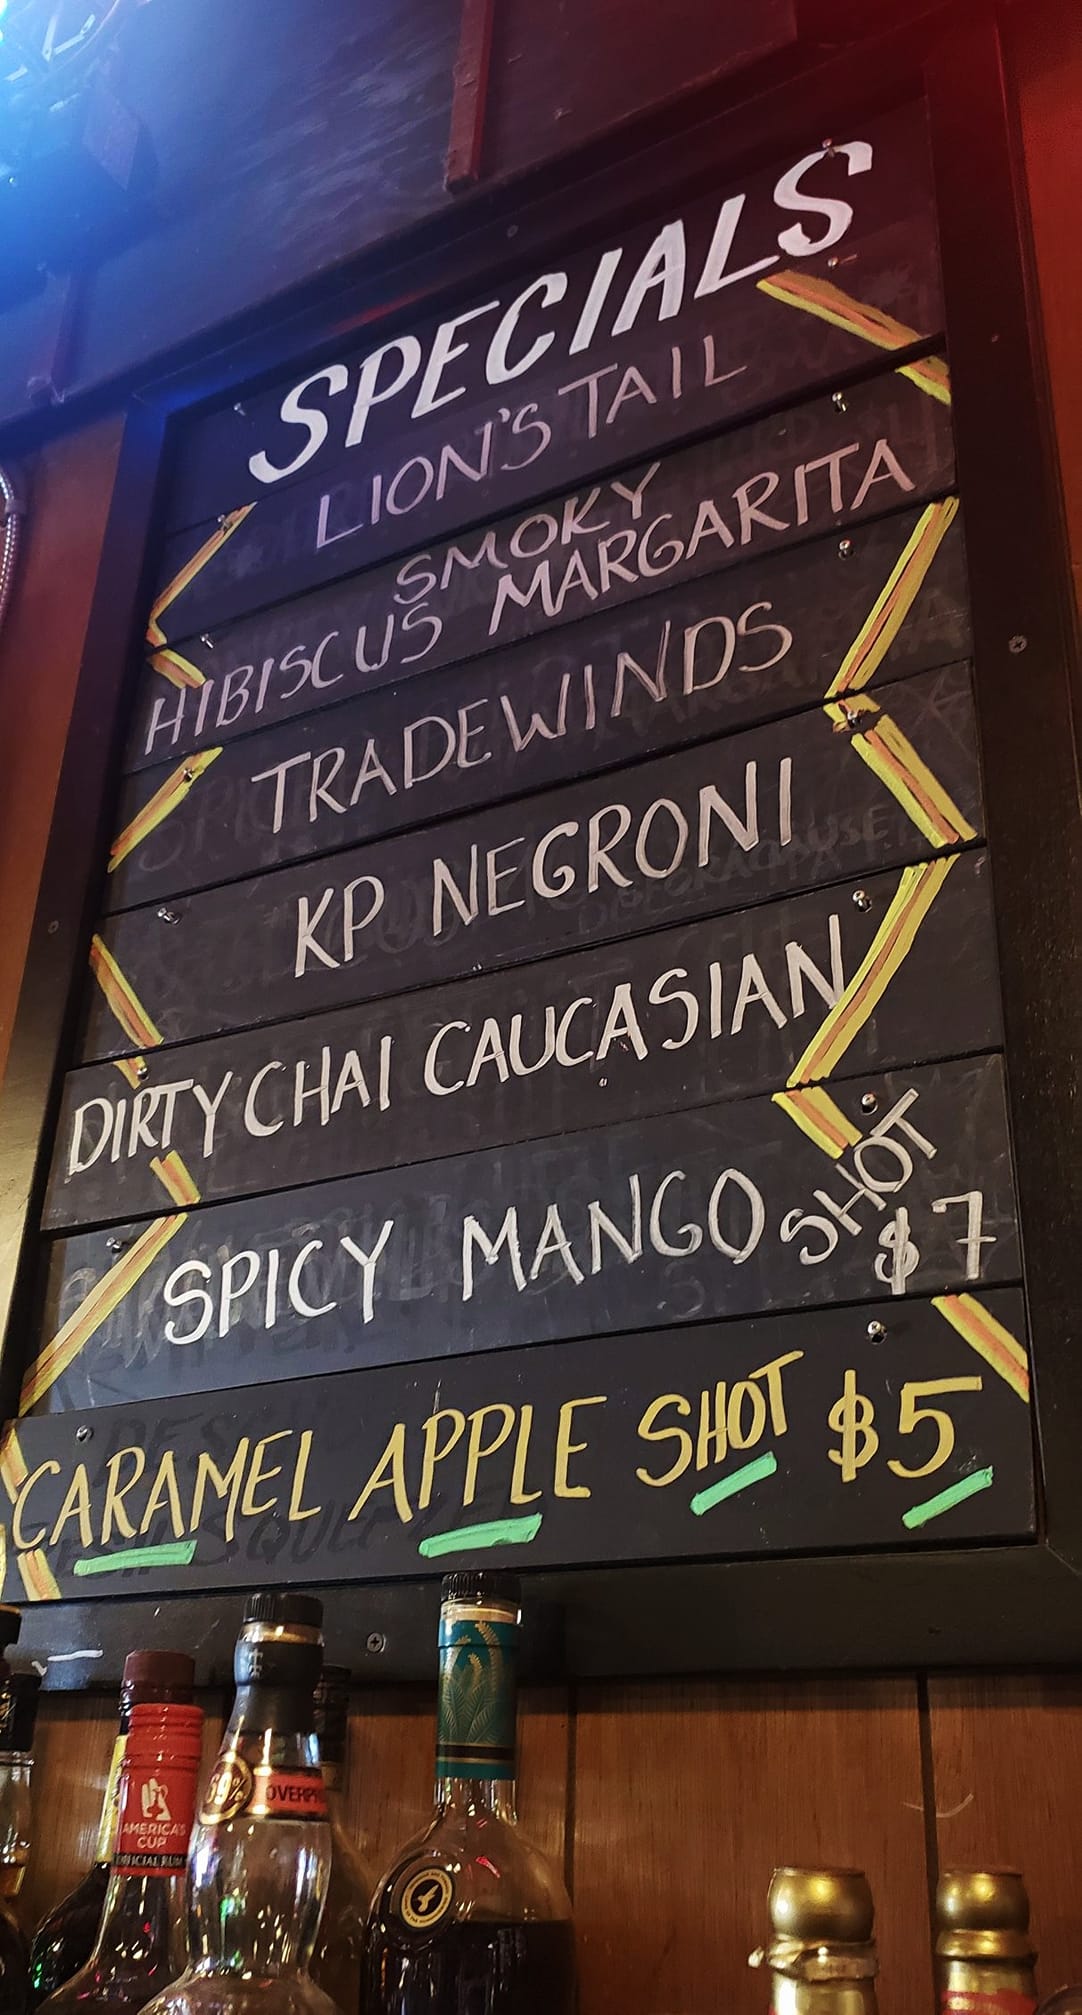 SPECIALS
LION'S TAIL
SMOKY
HIBISCUS MARGARITA
TRADEWINDS
KP NEGRONI
DIRTY CHAI CAUCASIAN
SPICY MANGO SHOT
$7
CARAMEL APPLE SHOT $5
69%
AMERICA'S
CUP
OFFICIAL RUM